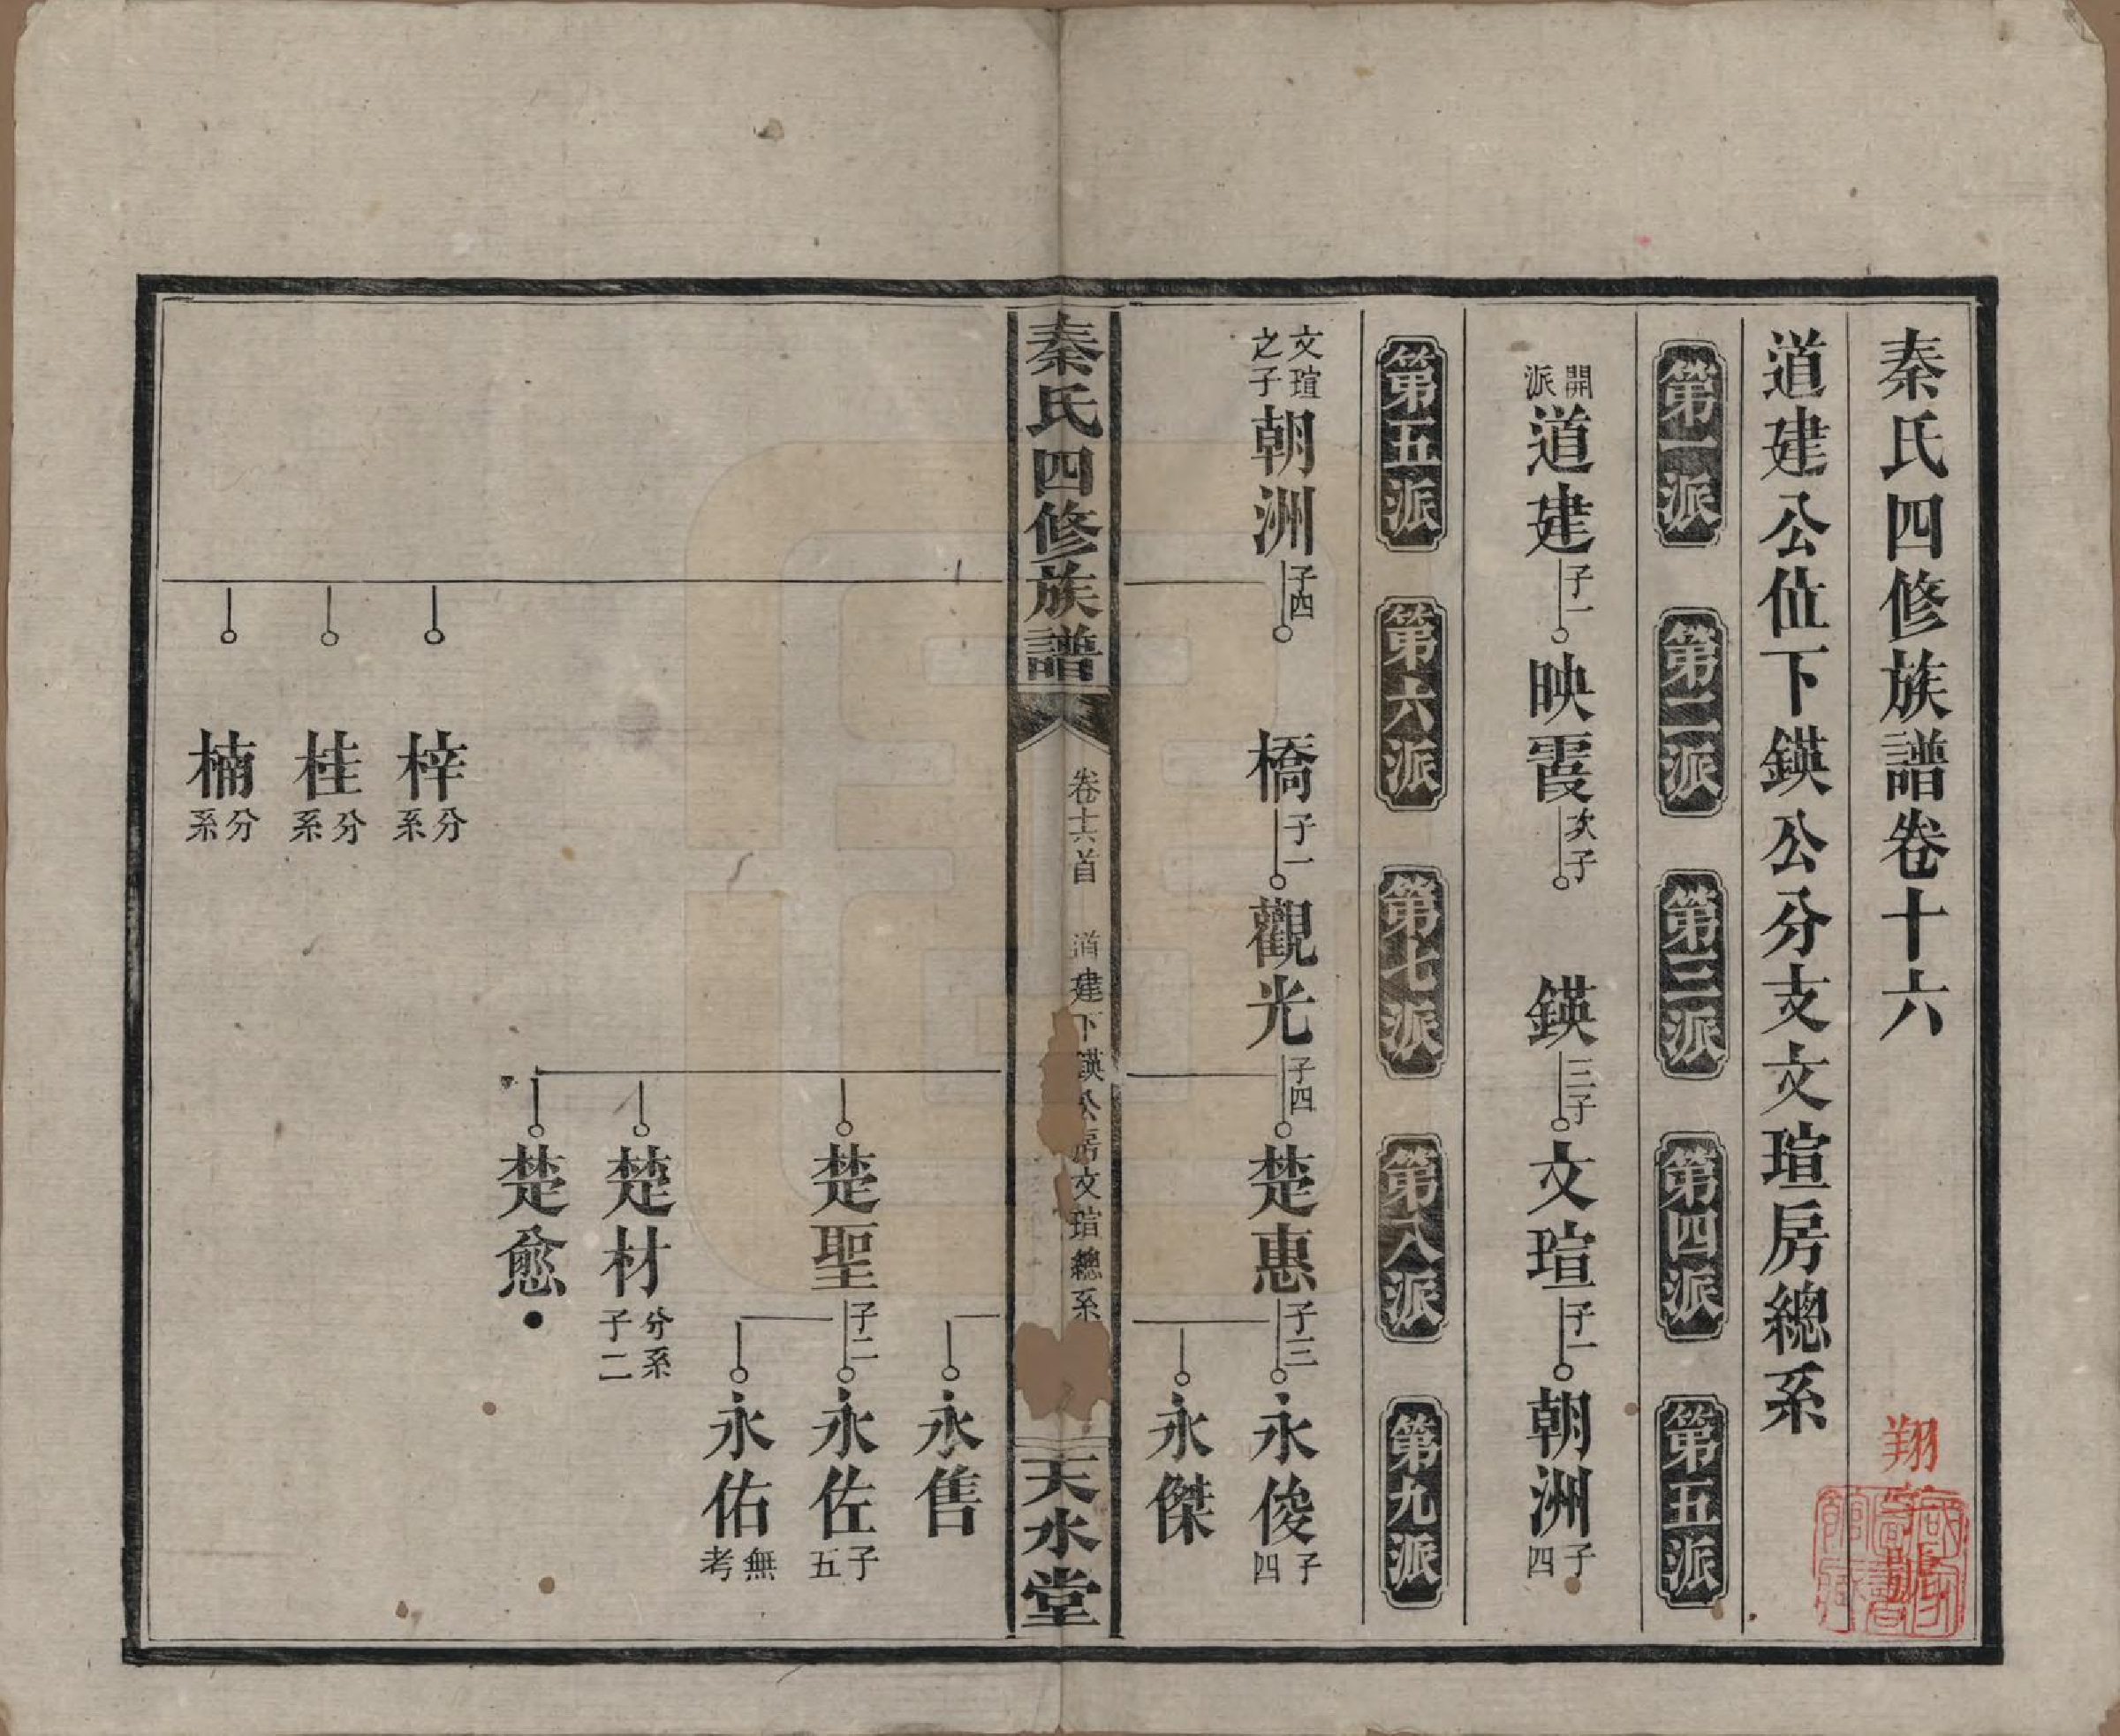 秦氏四修族譜卷十六
道建公位下鍈公分支文瑄房總系
第一派 第二派 第三派 第四派 第五派
開派 道建 子一 映霞 次子 鍈 三子 文瑄 子一 朝洲 子四
第五派 第六派 第七派 第八派 第九派
文瑄之子 朝洲 子四 橋 子一 觀光 子四 楚惠 子三 永俊 子四
永傑
秦氏四修族譜 卷十六首 道建下鍈公房文瑄總系 天水堂
永售
楚聖 子二 永佐 子五
永佑 無考
楚材 分系 子二
楚愈
梓 分系
桂 分系
楠 分系
翔
號